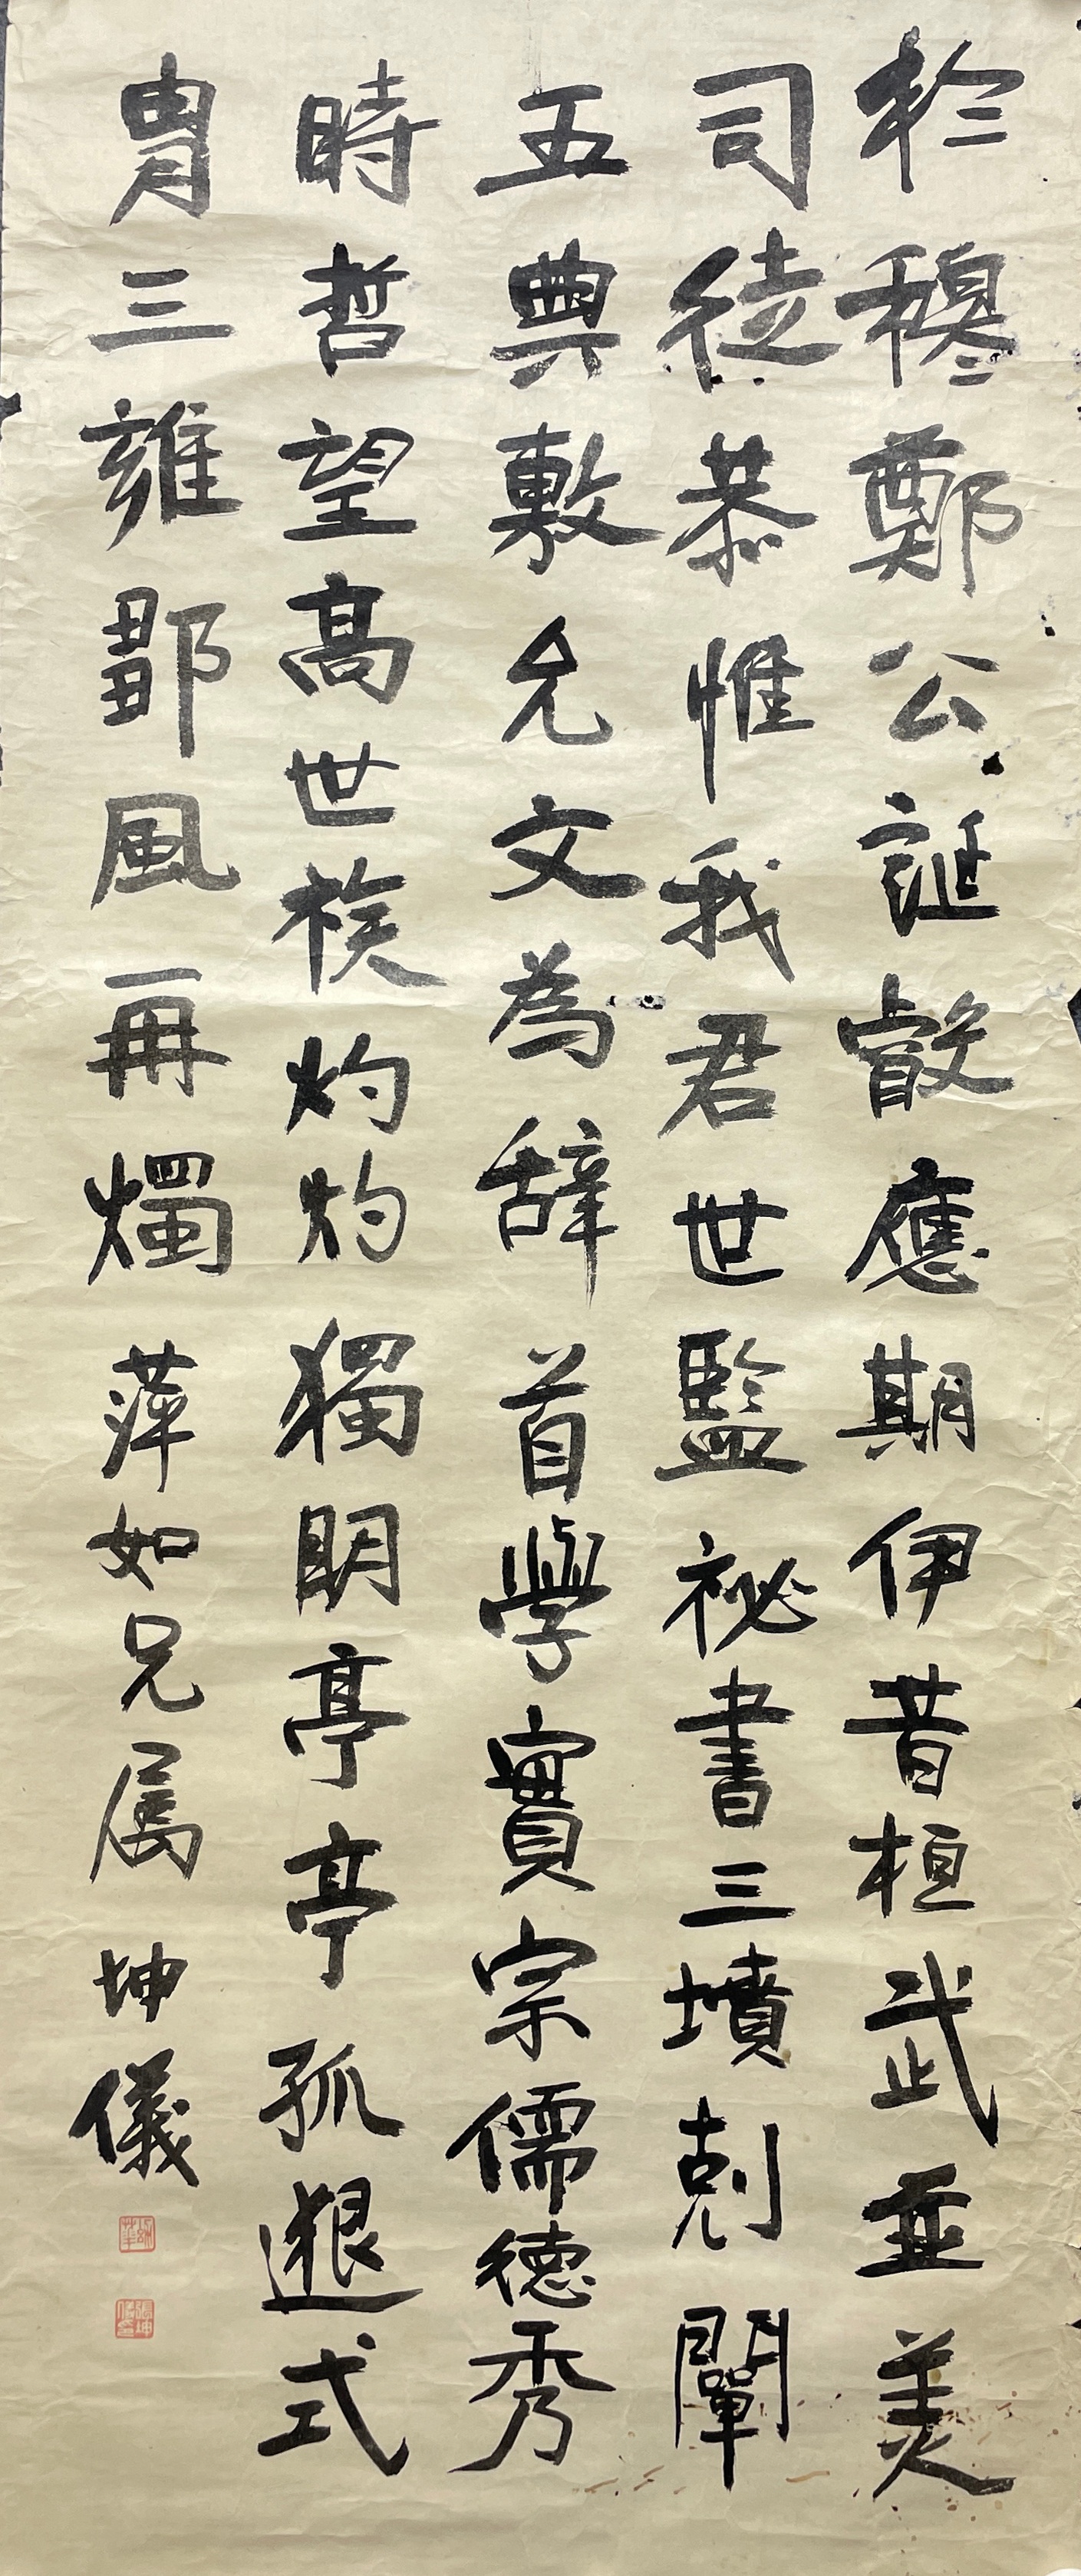 於穆鄭公誕叡應期伊昔桓武並美
司徒恭惟我君世監祕書三墳剋闡
五典敷允文為辞首學實宗儒德秀
時哲望高世族灼灼獨明亭亭孤邈式
胄三雍鄒風再燭萍如兄属坤儀
張坤儀